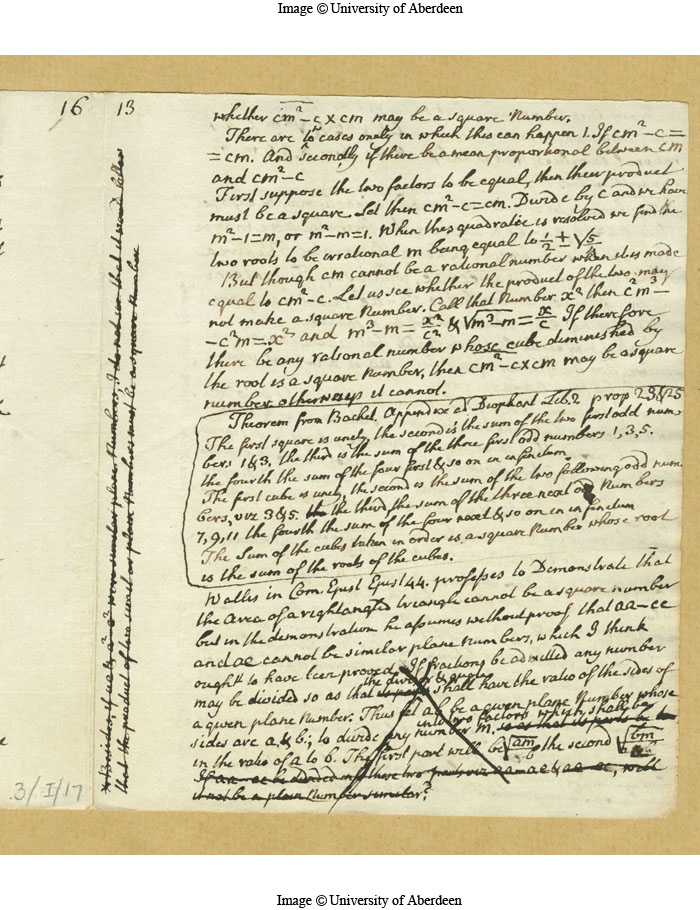 Image © University of Aberdeen
16 13
whether cm² – c × cm may be a square Number.
There are to cases onely in which this can happen 1. If cm² – c =
= cm. And secondly if there be a mean proportional between cm
and cm² – c
First suppose the two factors to be equal, then their product
must be a square. Let then cm² – c = cm. Divide by c and we have
m² – 1 = m, or m² – m = 1. When this quadratic is resolved we find the
two roots to be irrational m being equal to ½ ± √5
But though cm cannot be a rational number when it is made
equal to cm² – c. Let us see whether the product of the two may
not make a square Number. Call that Number x² then c²m³ –
– c²m = x² and m³ – m = x²/c² & √m³ – m = x/c If therefore
there be any rational number whose cube diminished by
the root is a square Number, then cm² – c × cm may be a square
number otherways it cannot.
Theorem from Bachet. Appendix ad Diophant Lib. 2 prop 23 & 25
The first square is unity, the second is the sum of the two first odd num-
bers 1 & 3, the third is the sum of the three first odd numbers 1, 3, 5.
the fourth the sum of the four first & so on in infinitum.
The first cube is unity, the second is the sum of the two following odd num
bers, viz 3 & 5 the third, the sum of the three next odd Numbers
7, 9, 11 the fourth the sum of the four next & so on in infinitum
The Sum of the cubes taken in order is a square Number whose root
is the sum of the roots of the cubes.
Wallis in Com. Epist Epist 44. professes to Demonstrate that
the Area of a rightangled triangle cannot be a square number
but in the demonstration he assumes without proof that aa – ee
and ae cannot be similar plane numbers, which I think
ought to have been proved. If fractions be admitted any number
may be divided so as that the divisor & quote shall have the ratio of the sides of
a given plane Number. Thus let ab be a given plane Number whose
sides are a, & b; to divide any number m, into two factors which shall be
in the ratio of a to b. The first part will be √am/b the second √bm
If aa – ee be divided into these two parts viz aa – ae & ae – ee, will
it not be a plain Number similar?
that the product of two small or plain Numbers must be a square Number
.3/I/17
Image © University of Aberdeen